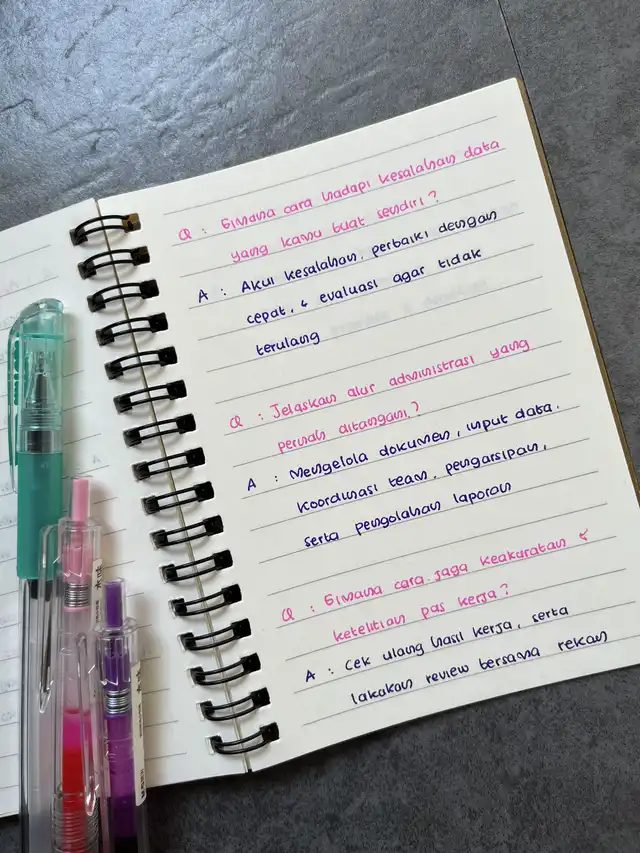 Q : Gimana cara hadapi kesalahan data
yang kamu buat sendiri?
A : Akui kesalahan, perbaiki dengan
cepat, & evaluasi agar tidak
terulang
Q : Jelaskan alur administrasi yang
pernah ditangani?
A : Mengelola dokumen, input data,
koordinasi team, pengarsipan,
serta pengolahan laporan
Q : Gimana cara jaga keakuratan &
ketelitian pas kerja?
A : Cek ulang hasil kerja, serta
lakakan review bersama rekan